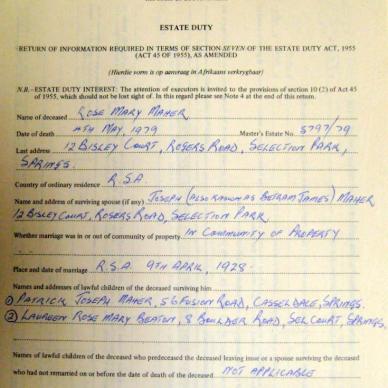 ESTATE DUTY
RETURN OF INFORMATION REQUIRED IN TERMS OF SECTION SEVEN OF THE ESTATE DUTY ACT, 1955
(ACT 45 OF 1955), AS AMENDED
(Hierdie vorm is op aanvraag in Afrikaans verkrygbaar)
N.B.—ESTATE DUTY INTEREST: The attention of executors is invited to the provisions of section 10 (2) of Act 45
of 1955, which should not be lost sight of. In this regard please see Note 4 at the end of this return.
Name of deceased ROSE MARY MAHER
Date of death 4TH MAY, 1979 Master's Estate No. 5797/79
Last address 12 BISLEY COURT, ROGERS ROAD, SELECTION PARK,
SPRINGS.
Country of ordinary residence R.S.A
Name and address of surviving spouse (if any) JOSEPH (ALSO KNOWN AS BETRAM JAMES) MAHER
12 BISLEY COURT, ROGERS ROAD, SELECTION PARK.
Whether marriage was in or out of community of property IN COMMUNITY OF PROPERTY
Place and date of marriage R.S.A. 9TH APRIL, 1928.
Names and addresses of lawful children of the deceased surviving him
① PATRICK JOSEPH MAHER, 56 FUSION ROAD, CASSELDALE, SPRINGS.
② LAUREEN ROSE MARY BEATON, 8 BOULDER ROAD, SELCOURT, SPRINGS.
Names of lawful children of the deceased who predeceased the deceased leaving issue or a spouse surviving the deceased
who had not remarried on or before the date of death of the deceased NOT APPLICABLE